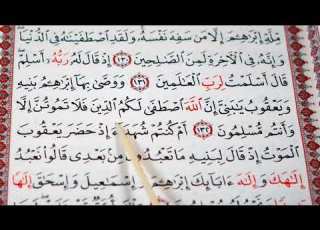 مِّلَّةِ إِبْرَٰهِـۧمَ إِلَّا مَن سَفِهَ نَفْسَهُۥ ۚ وَلَقَدِ ٱصْطَفَيْنَٰهُ فِى ٱلدُّنْيَا ۖ
وَإِنَّهُۥ فِى ٱلْـَٔاخِرَةِ لَمِنَ ٱلصَّٰلِحِينَ ﴿١٣٠﴾ إِذْ قَالَ لَهُۥ رَبُّهُۥٓ أَسْلِمْ ۖ
قَالَ أَسْلَمْتُ لِرَبِّ ٱلْعَٰلَمِينَ ﴿١٣١﴾ وَوَصَّىٰ بِهَآ إِبْرَٰهِـۧمُ بَنِيهِ
وَيَعْقُوبُ يَٰبَنِىَّ إِنَّ ٱللَّهَ ٱصْطَفَىٰ لَكُمُ ٱلدِّينَ فَلَا تَمُوتُنَّ إِلَّا
وَأَنتُم مُّسْلِمُونَ ﴿١٣٢﴾ أَمْ كُنتُمْ شُهَدَآءَ إِذْ حَضَرَ يَعْقُوبَ
ٱلْمَوْتُ إِذْ قَالَ لِبَنِيهِ مَا تَعْبُدُونَ مِنۢ بَعْدِى قَالُوا۟ نَعْبُدُ
إِلَٰهَكَ وَإِلَٰهَ ءَابَآئِكَ إِبْرَٰهِـۧمَ وَإِسْمَٰعِيلَ وَإِسْحَٰقَ إِلَٰهًا